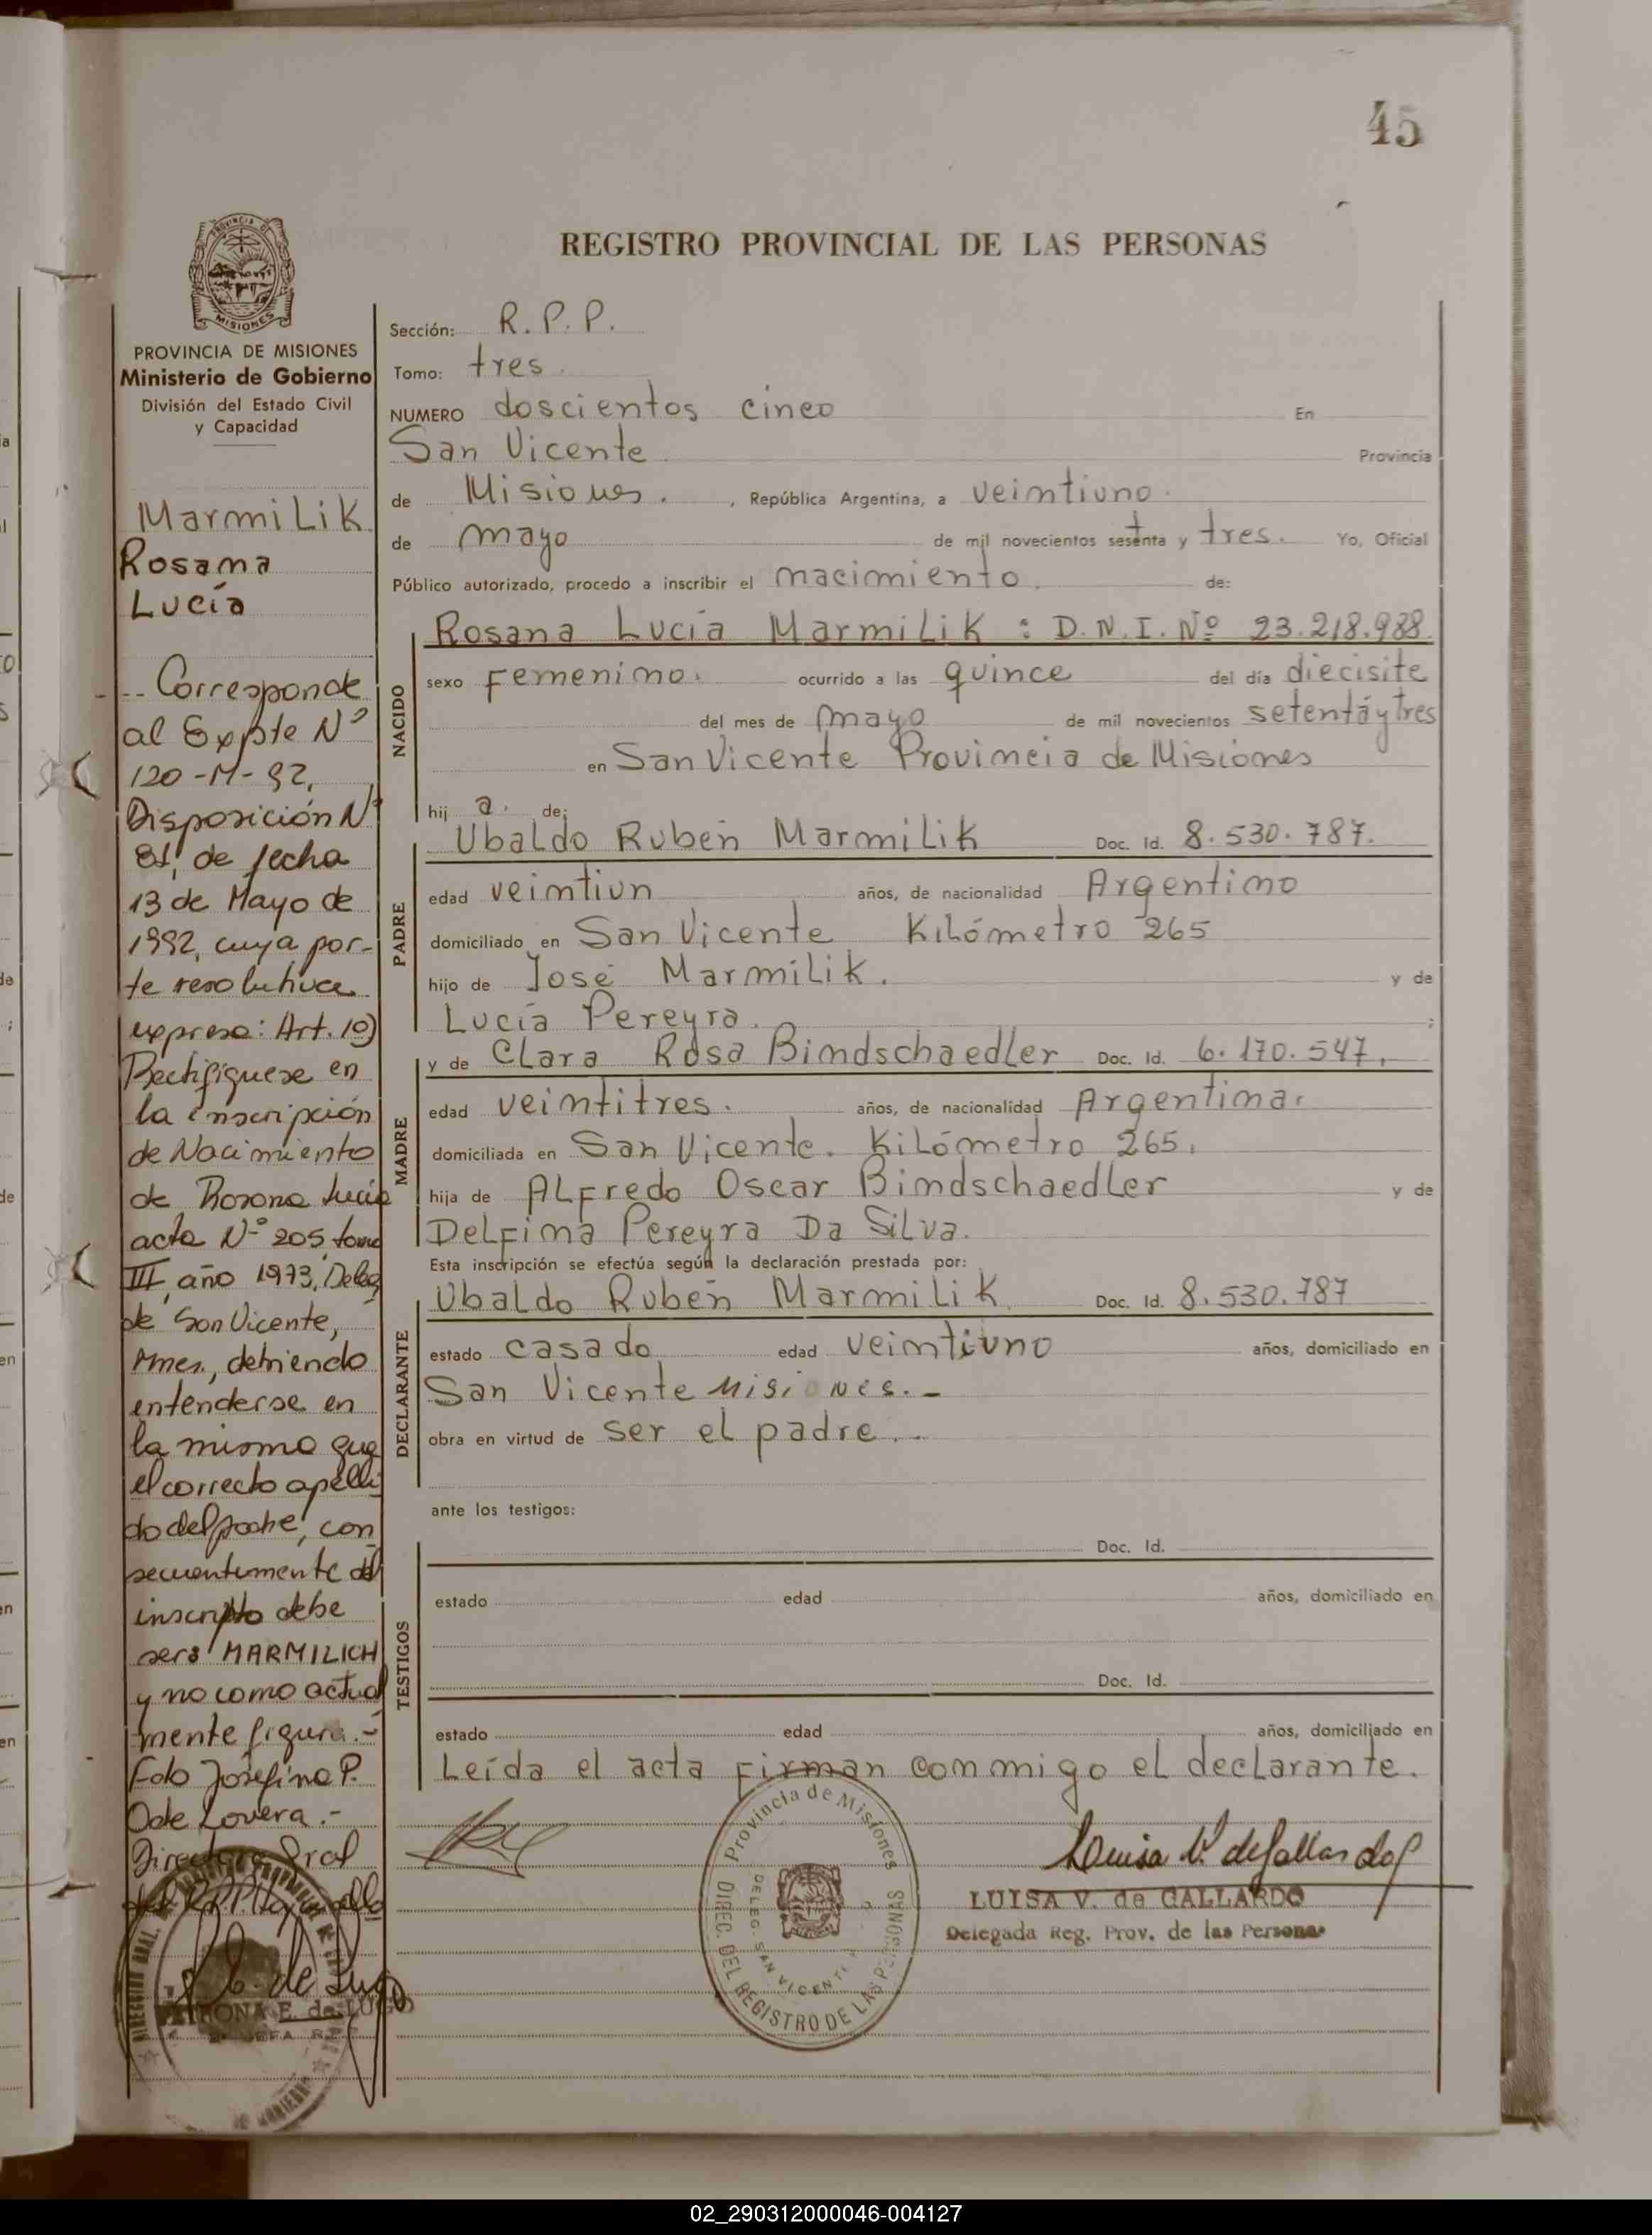 45
REGISTRO PROVINCIAL DE LAS PERSONAS
MISIONES
PROVINCIA DE MISIONES
Ministerio de Gobierno
División del Estado Civil
y Capacidad
Marmilik
Rosana
Lucía
Corresponde
al Expte Nº
120-M-92,
Disposición Nº
81, de fecha
13 de Mayo de
1992, cuya par-
te resolutiva
expresa: Art. 1º)
Rectifíquese en
la inscripción
de Nacimiento
de Rosana Lucía
acta Nº 205, tomo
III, año 1973, Deleg
de San Vicente,
Mnes., debiendo
entenderse en
la misma que
el correcto apelli
do del padre, con
secuentemente del
inscripto debe
ser: MARMILICH
y no como actual
mente figura.-
Fdo Josefina P.
Ode Lovera.-
Directora Gral
del R.P.P.
E. de LUGO
Sección: R. P. P.
Tomo: tres
NUMERO doscientos cinco En
San Vicente Provincia
de Misiones. , República Argentina, a veintiuno.
de mayo de mil novecientos setenta y tres. Yo, Oficial
Público autorizado, procedo a inscribir el nacimiento. de:
NACIDO
Rosana Lucía Marmilik : D.N.I. Nº 23.218.988
sexo Femenino. ocurrido a las quince del día diecisite
del mes de mayo de mil novecientos setenta y tres
en San Vicente Provincia de Misiones
hij a. de:
PADRE
Ubaldo Rubén Marmilik Doc. Id. 8.530.787.
edad veintiun años, de nacionalidad Argentino
domiciliado en San Vicente Kilómetro 265
hijo de José Marmilik. y de
Lucía Pereyra. ;
MADRE
y de Clara Rosa Bindschaedler Doc. Id. 6.170.547.
edad veintitres. años, de nacionalidad Argentina.
domiciliada en San Vicente. Kilómetro 265.
hija de Alfredo Oscar Bindschaedler y de
Delfina Pereyra Da Silva.
Esta inscripción se efectúa según la declaración prestada por:
DECLARANTE
Ubaldo Rubén Marmilik Doc. Id. 8.530.787
estado casado edad veintiuno años, domiciliado en
San Vicente Misiones.-
obra en virtud de ser el padre..
ante los testigos:
TESTIGOS
Doc. Id.
estado edad años, domiciliado en
Doc. Id.
estado edad años, domiciliado en
Leída el acta firman conmigo el declarante.
Provincia de Misiones
DIREC. DEL REGISTRO DE LAS PERSONAS
DELEG. SAN VICENTE
Luisa V. de Gallardo
LUISA V. de GALLARDO
Delegada Reg. Prov. de las Personas
02_290312000046-004127